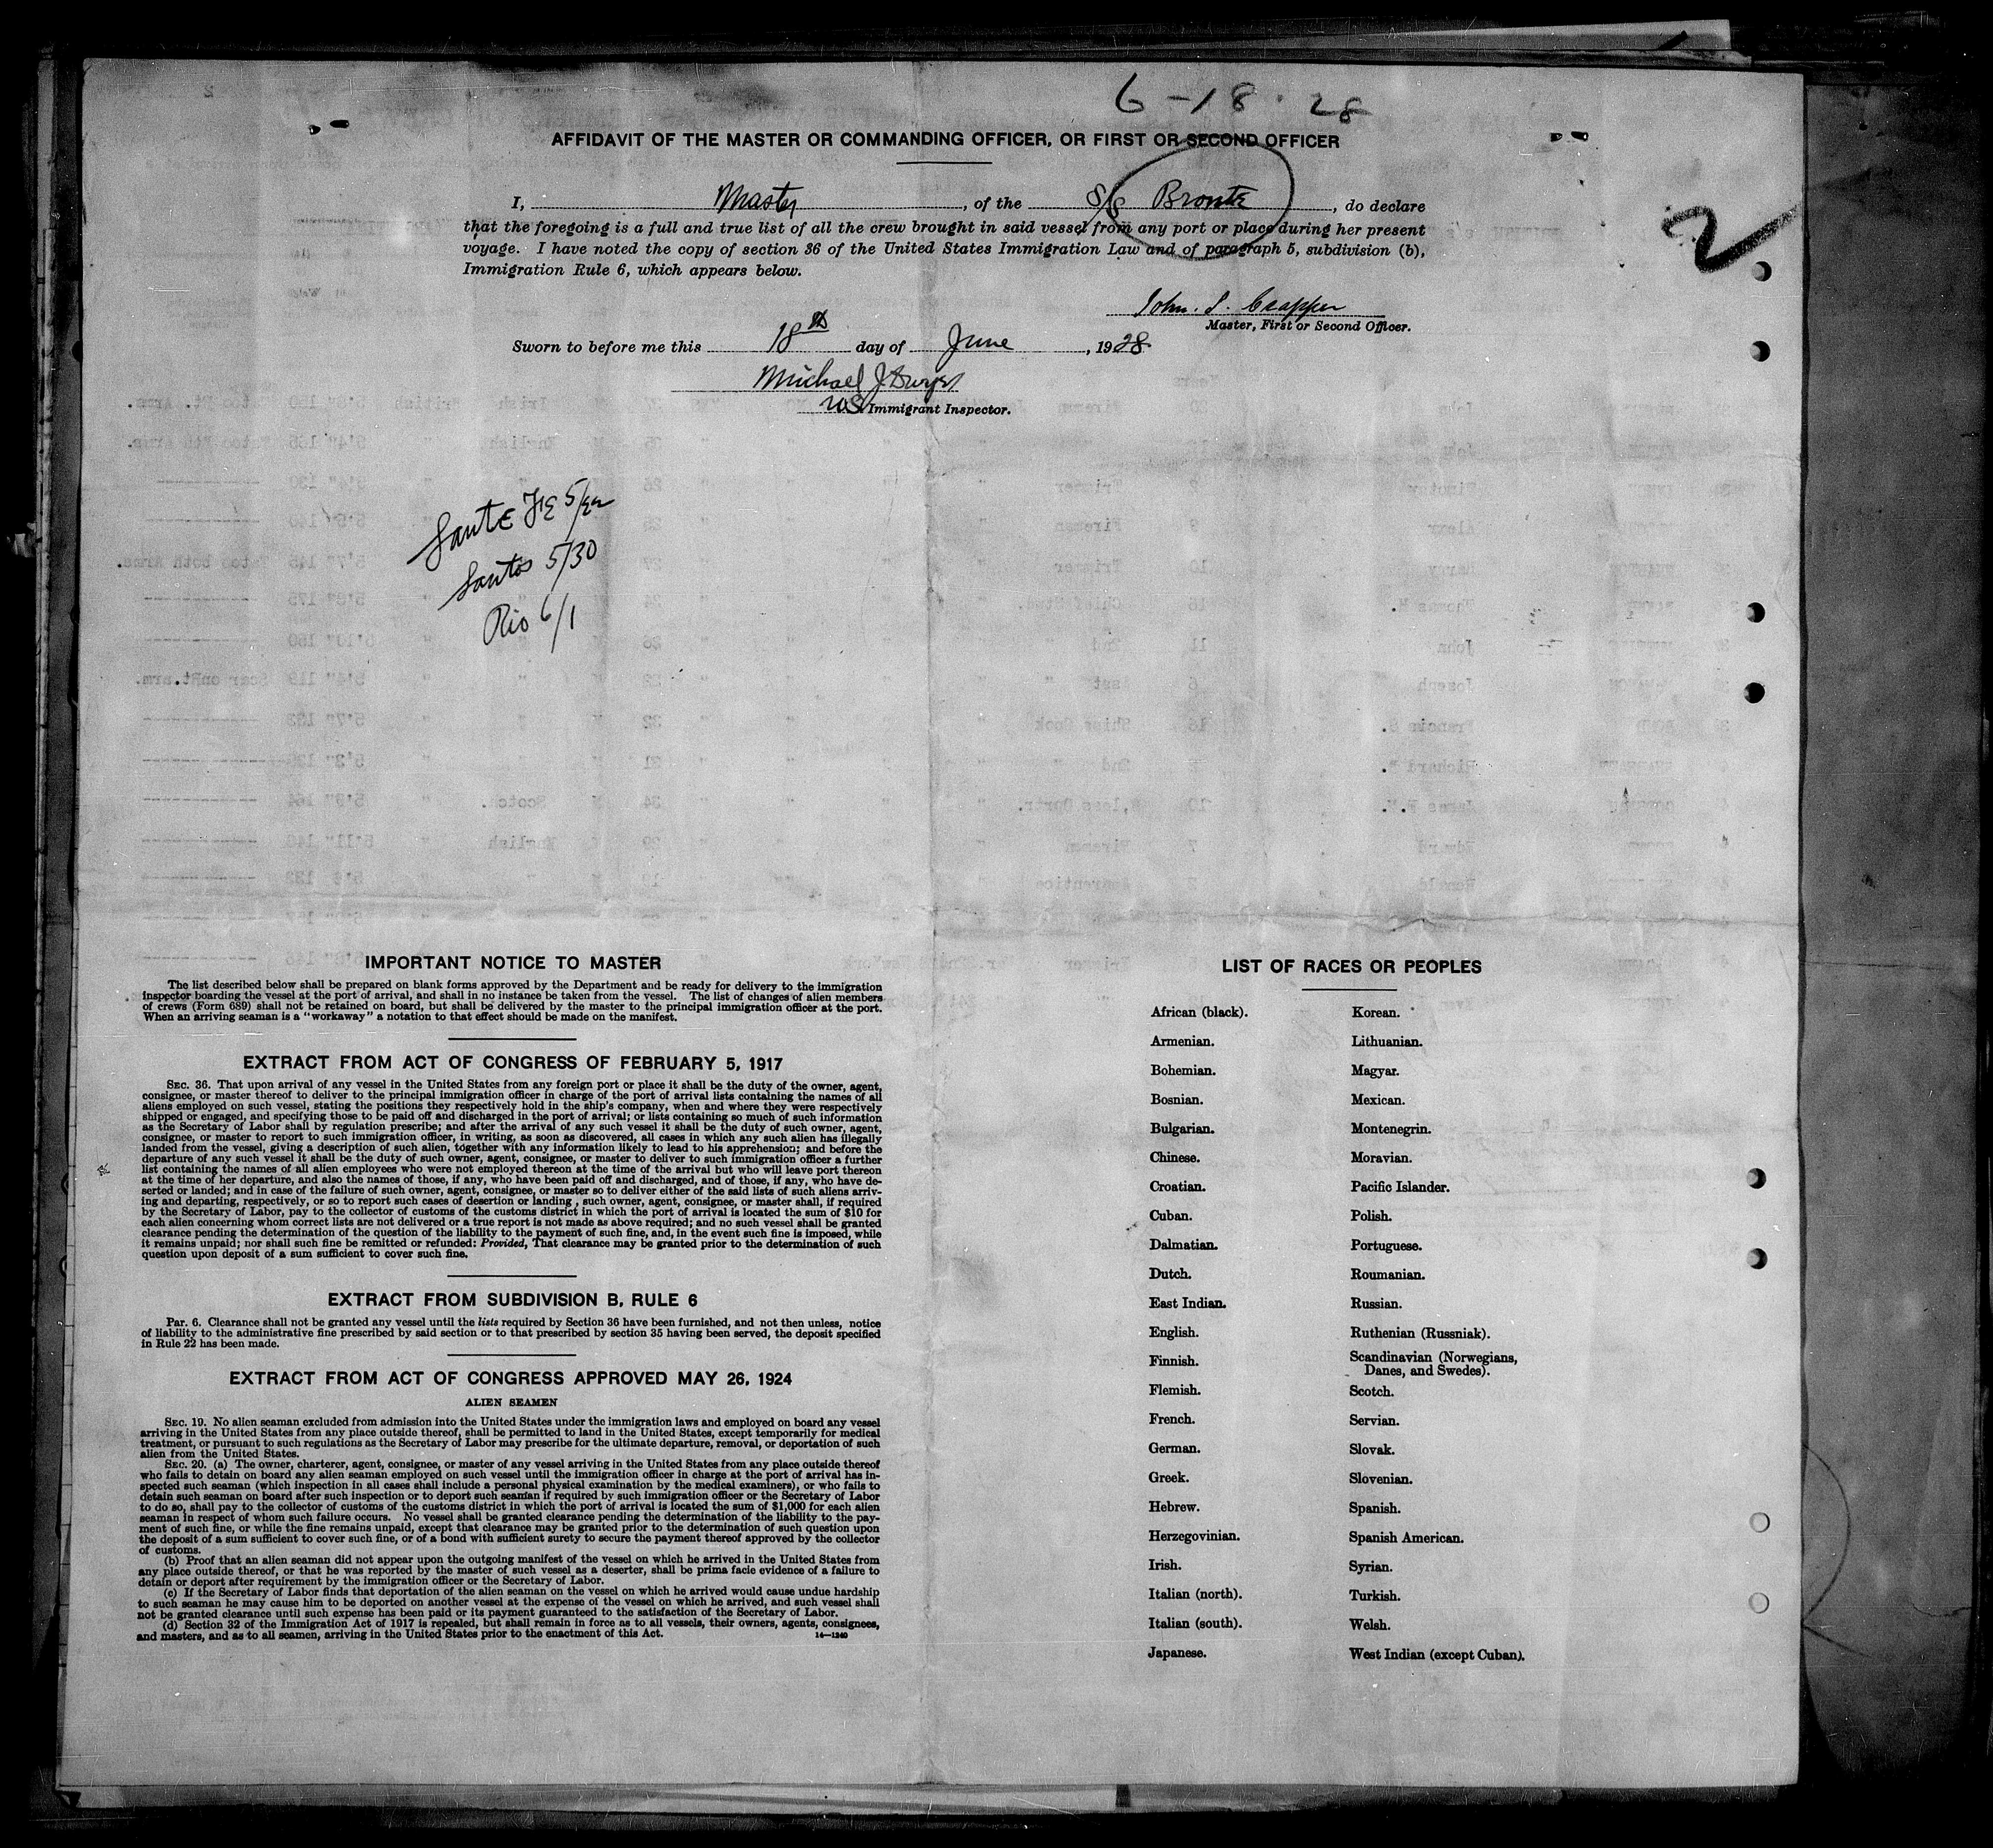 6-18-28
AFFIDAVIT OF THE MASTER OR COMMANDING OFFICER, OR FIRST OR SECOND OFFICER
I, Master, of the S/S Bronte, do declare
that the foregoing is a full and true list of all the crew brought in said vessel from any port or place during her present
voyage. I have noted the copy of section 36 of the United States Immigration Law and of paragraph 5, subdivision (b),
Immigration Rule 6, which appears below.
2
John. S. Crapper
Master, First or Second Officer.
Sworn to before me this 18th day of June, 1928
Michael J Dwyer
US Immigrant Inspector.
Sante Fe 5/22
Santos 5/30
Rio 6/1
IMPORTANT NOTICE TO MASTER
The list described below shall be prepared on blank forms approved by the Department and be ready for delivery to the immigration
inspector boarding the vessel at the port of arrival, and shall in no instance be taken from the vessel. The list of changes of alien members
of crews (Form 689) shall not be retained on board, but shall be delivered by the master to the principal immigration officer at the port.
When an arriving seaman is a "workaway" a notation to that effect should be made on the manifest.
EXTRACT FROM ACT OF CONGRESS OF FEBRUARY 5, 1917
SEC. 36. That upon arrival of any vessel in the United States from any foreign port or place it shall be the duty of the owner, agent,
consignee, or master thereof to deliver to the principal immigration officer in charge of the port of arrival lists containing the names of all
aliens employed on such vessel, stating the positions they respectively hold in the ship's company, when and where they were respectively
shipped or engaged, and specifying those to be paid off and discharged in the port of arrival; or lists containing so much of such information
as the Secretary of Labor shall by regulation prescribe; and after the arrival of any such vessel it shall be the duty of such owner, agent,
consignee, or master to report to such immigration officer, in writing, as soon as discovered, all cases in which any such alien has illegally
landed from the vessel, giving a description of such alien, together with any information likely to lead to his apprehension; and before the
departure of any such vessel it shall be the duty of such owner, agent, consignee, or master to deliver to such immigration officer a further
list containing the names of all alien employees who were not employed thereon at the time of the arrival but who will leave port thereon
at the time of her departure, and also the names of those, if any, who have been paid off and discharged, and of those, if any, who have de-
serted or landed; and in case of the failure of such owner, agent, consignee, or master so to deliver either of the said lists of such aliens arriv-
ing and departing, respectively, or so to report such cases of desertion or landing, such owner, agent, consignee, or master shall, if required
by the Secretary of Labor, pay to the collector of customs of the customs district in which the port of arrival is located the sum of $10 for
each alien concerning whom correct lists are not delivered or a true report is not made as above required; and no such vessel shall be granted
clearance pending the determination of the question of the liability to the payment of such fine, and, in the event such fine is imposed, while
it remains unpaid; nor shall such fine be remitted or refunded: Provided, That clearance may be granted prior to the determination of such
question upon deposit of a sum sufficient to cover such fine.
EXTRACT FROM SUBDIVISION B, RULE 6
Par. 6. Clearance shall not be granted any vessel until the lists required by Section 36 have been furnished, and not then unless, notice
of liability to the administrative fine prescribed by said section or to that prescribed by section 35 having been served, the deposit specified
in Rule 22 has been made.
EXTRACT FROM ACT OF CONGRESS APPROVED MAY 26, 1924
ALIEN SEAMEN
SEC. 19. No alien seaman excluded from admission into the United States under the immigration laws and employed on board any vessel
arriving in the United States from any place outside thereof, shall be permitted to land in the United States, except temporarily for medical
treatment, or pursuant to such regulations as the Secretary of Labor may prescribe for the ultimate departure, removal, or deportation of such
alien from the United States.
SEC. 20. (a) The owner, charterer, agent, consignee, or master of any vessel arriving in the United States from any place outside thereof
who fails to detain on board any alien seaman employed on such vessel until the immigration officer in charge at the port of arrival has in-
spected such seaman (which inspection in all cases shall include a personal physical examination by the medical examiners), or who fails to
detain such seaman on board after such inspection or to deport such seaman if required by such immigration officer or the Secretary of Labor
to do so, shall pay to the collector of customs of the customs district in which the port of arrival is located the sum of $1,000 for each alien
seaman in respect of whom such failure occurs. No vessel shall be granted clearance pending the determination of the liability to the pay-
ment of such fine, or while the fine remains unpaid, except that clearance may be granted prior to the determination of such question upon
the deposit of a sum sufficient to cover such fine, or of a bond with sufficient surety to secure the payment thereof approved by the collector
of customs.
(b) Proof that an alien seaman did not appear upon the outgoing manifest of the vessel on which he arrived in the United States from
any place outside thereof, or that he was reported by the master of such vessel as a deserter, shall be prima facie evidence of a failure to
detain or deport after requirement by the immigration officer or the Secretary of Labor.
(c) If the Secretary of Labor finds that deportation of the alien seaman on the vessel on which he arrived would cause undue hardship
to such seaman he may cause him to be deported on another vessel at the expense of the vessel on which he arrived, and such vessel shall
not be granted clearance until such expense has been paid or its payment guaranteed to the satisfaction of the Secretary of Labor.
(d) Section 32 of the Immigration Act of 1917 is repealed, but shall remain in force as to all vessels, their owners, agents, consignees,
and masters, and as to all seamen, arriving in the United States prior to the enactment of this Act.
14—1240
LIST OF RACES OR PEOPLES
African (black). Korean.
Armenian. Lithuanian.
Bohemian. Magyar.
Bosnian. Mexican.
Bulgarian. Montenegrin.
Chinese. Moravian.
Croatian. Pacific Islander.
Cuban. Polish.
Dalmatian. Portuguese.
Dutch. Roumanian.
East Indian. Russian.
English. Ruthenian (Russniak).
Finnish. Scandinavian (Norwegians,
Danes, and Swedes).
Flemish. Scotch.
French. Servian.
German. Slovak.
Greek. Slovenian.
Hebrew. Spanish.
Herzegovinian. Spanish American.
Irish. Syrian.
Italian (north). Turkish.
Italian (south). Welsh.
Japanese. West Indian (except Cuban).